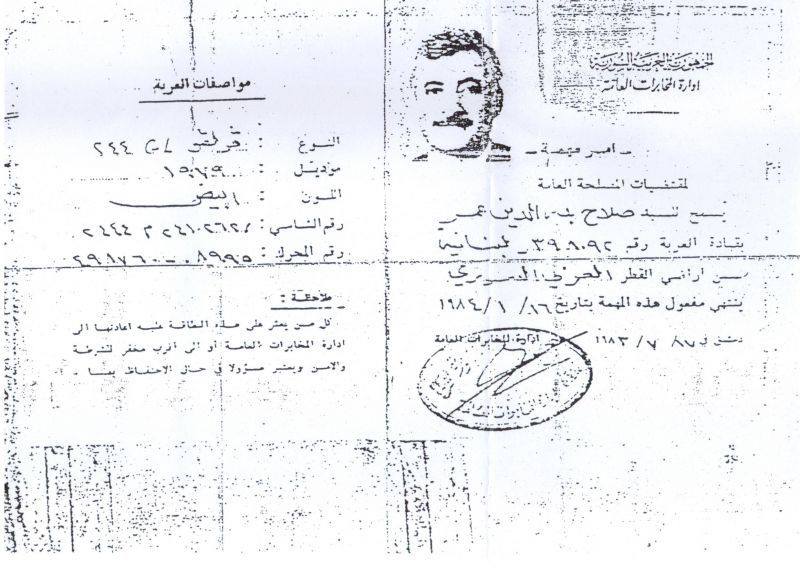 الجمهورية العربية السورية
إدارة المخابرات العامة
ـ أمر مهمة ـ
لمقتضيات المصلحة العامة
يسمح للسيد صلاح بدر الدين عمر
بقيادة العربة رقم ٣٩٨٠٩٢ لبنانية
ضمن اراضي القطر العربي السوري
ينتهي مفعول هذه المهمة بتاريخ ١٦/ ١ /١٩٨٤
دمشق في / ٧ / ١٩٨٣
ادارة المخابرات العامة
مواصفات العربة
النوع :
موديل : ١٩٧٩
اللون : ابيض
رقم الشاسي :
رقم المحرك :
ملاحظة :
كل من يعثر على هذه البطاقة عليه اعادتها الى
ادارة المخابرات العامة أو الى أقرب مخفر للشرطة
والامن ويعتبر مسؤولا في حال الاحتفاظ بها ـ